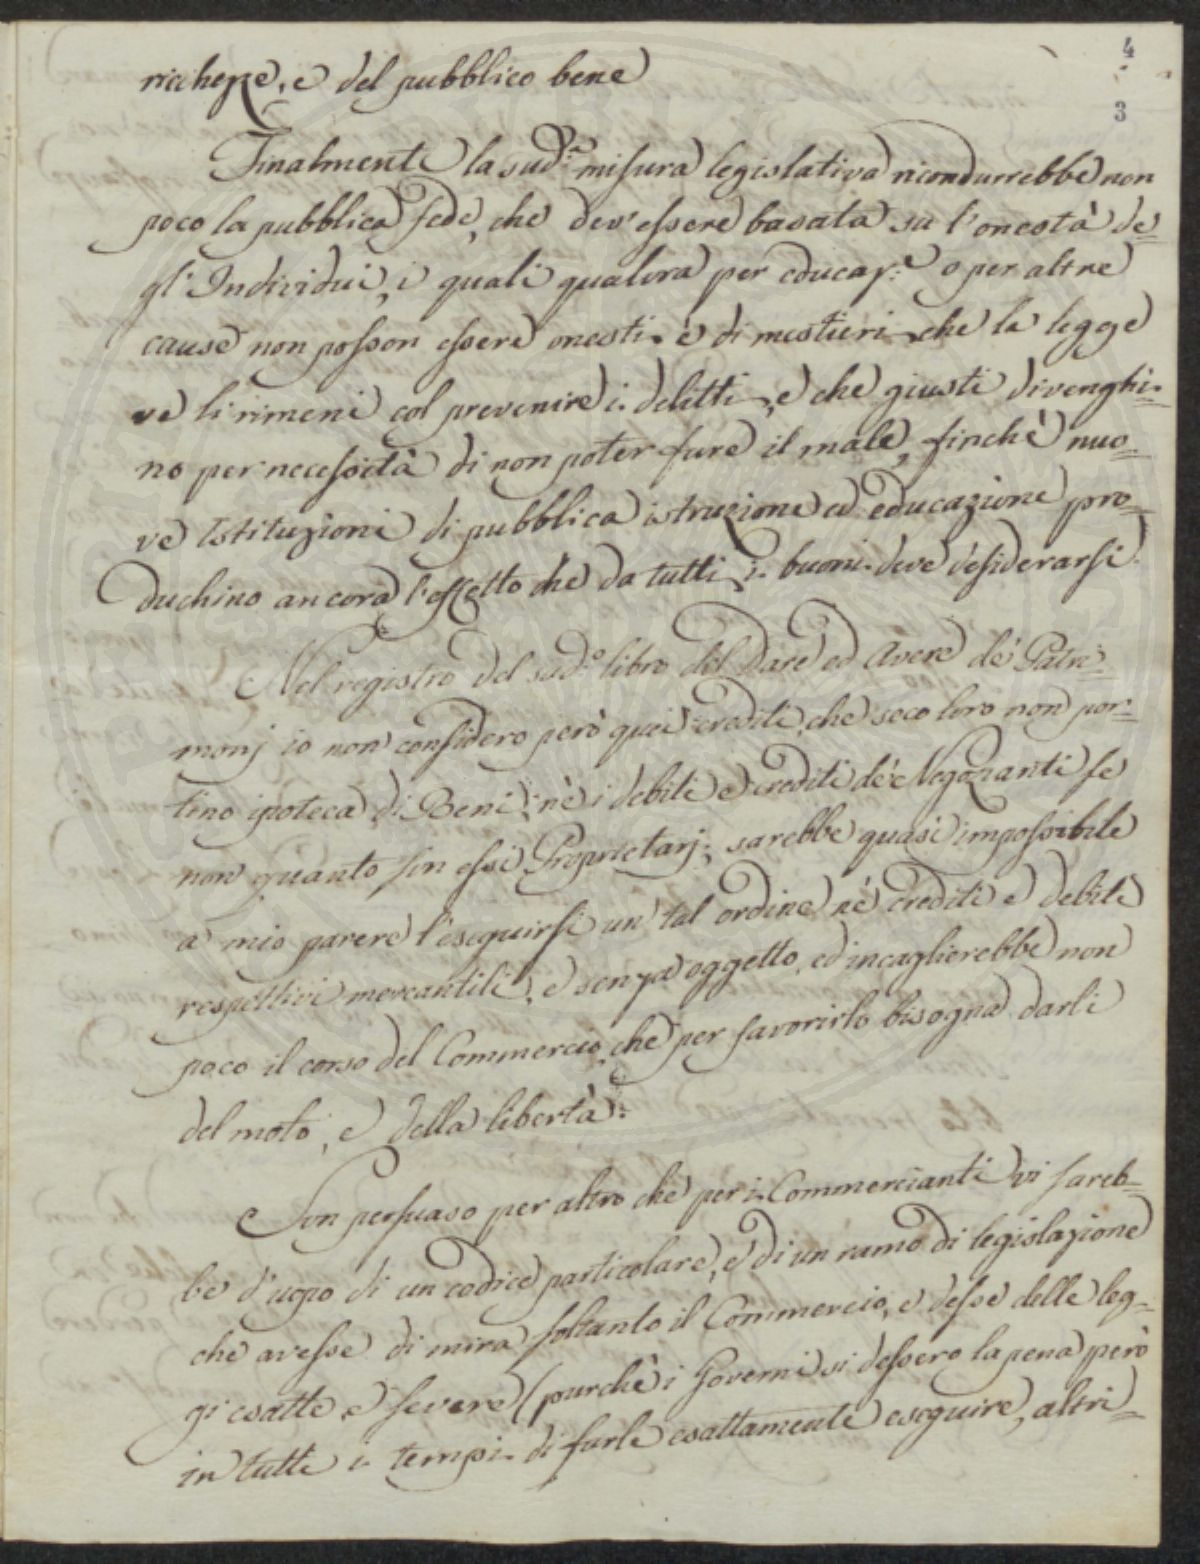 4
3
ricchezze, e del pubblico bene
Finalmente la sud.a misura legislativa ricondurrebbe non
poco la pubblica fede, che dev'essere basata su l'onestà de=
gl'Individui, i quali qualora per educaz.e o per altre
cause non posson essere onesti è di mestieri che la legge
ve li rimeni col prevenire i delitti, e che giusti divenghi=
no per necessità di non poter fare il male, finchè nuo=
ve Istituzioni di pubblica istruzione ed educazione pro=
duchino ancora l'effetto che da tutti i buoni deve desiderarsi.
Nel registro del sud.o libro del Dare ed Avere de' Patri=
monj io non considero però quei crediti, che seco loro non por=
tino ipoteca di Beni; nè i debiti e crediti de' Negozianti se
non quanto son essi Proprietarj; sarebbe quasi impossibile
a mio parere l'eseguirsi un tal ordine nè crediti e debiti
respettivi mercantili, e senza oggetto, ed incaglierebbe non
poco il corso del Commercio, che per favorirlo bisogna darli
del moto, e della libertà.
Son persuaso per altro che per i Commercianti vi sareb=
be d'uopo di un codice particolare, e di un ramo di legislazione
che avesse di mira soltanto il Commercio, e desse delle leg=
gi esatte e severe (purchè i Governi si dessero la pena però
in tutti i tempi di farle esattamente eseguire, altri=